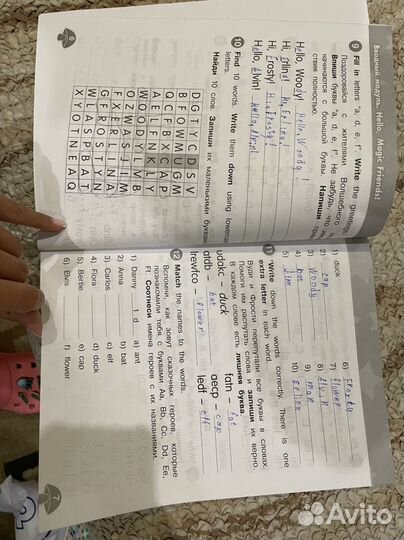 Вводный модуль. Hello, Magic Friends!
9 Fill in letters "a, d, e, f". Write the greetings
Поздоровайся с жителями Волшебного
Впиши буквы "a, d, e, f". Не забудь, что
начинаются с большой буквы. Напиши
ствия полностью.
Hello, Woody! Hello, Woody!
Hi, Erlina! Hi, Erlina!
Hi, Frosty! Hi, Frosty!
Hello, Alvin! Hello, Alvin!
10 Find 10 words. Write them down using lowercase
letters.
Найди 10 слов. Запиши их маленькими буквами
D G T Y C D S V
B F P W M U G M
Q C P B X C A P
A E L I N K L Y
W O O D Y L V B
O Z W A S J I M
F X E R L I N A
G F R O S T Y N
W L A S P B A T
X Y O T N E A Q
6
1) duck
2) cap
3) Woody
4) bat
5) Jim
6) Frosty
7) flower
8) Alvin
9) man
10) Erlina
11 *Write down the words correctly. There is one
extra letter in each word.
Вуди и Фрости перепутали все буквы в словах.
Помоги им распутать слова и запиши их верно.
В каждом слове есть лишняя буква.
udakc – duck
fatn – fat
atdb – bat
aecp – cap
lrewfco – flower
ledf – elf
12 Match the names to the words.
Вспомни, как зовут сказочных героев, которые
познакомили тебя с буквами Aa, Bb, Cc, Dd, Ee,
Ff. Соотнеси имена героев с их названиями.
1) Danny 1 d a) ant
2) Anna b) bat
3) Carlos c) elf
4) Flora d) duck
5) Bertie e) cap
6) Elvis f) flower
7
Avito